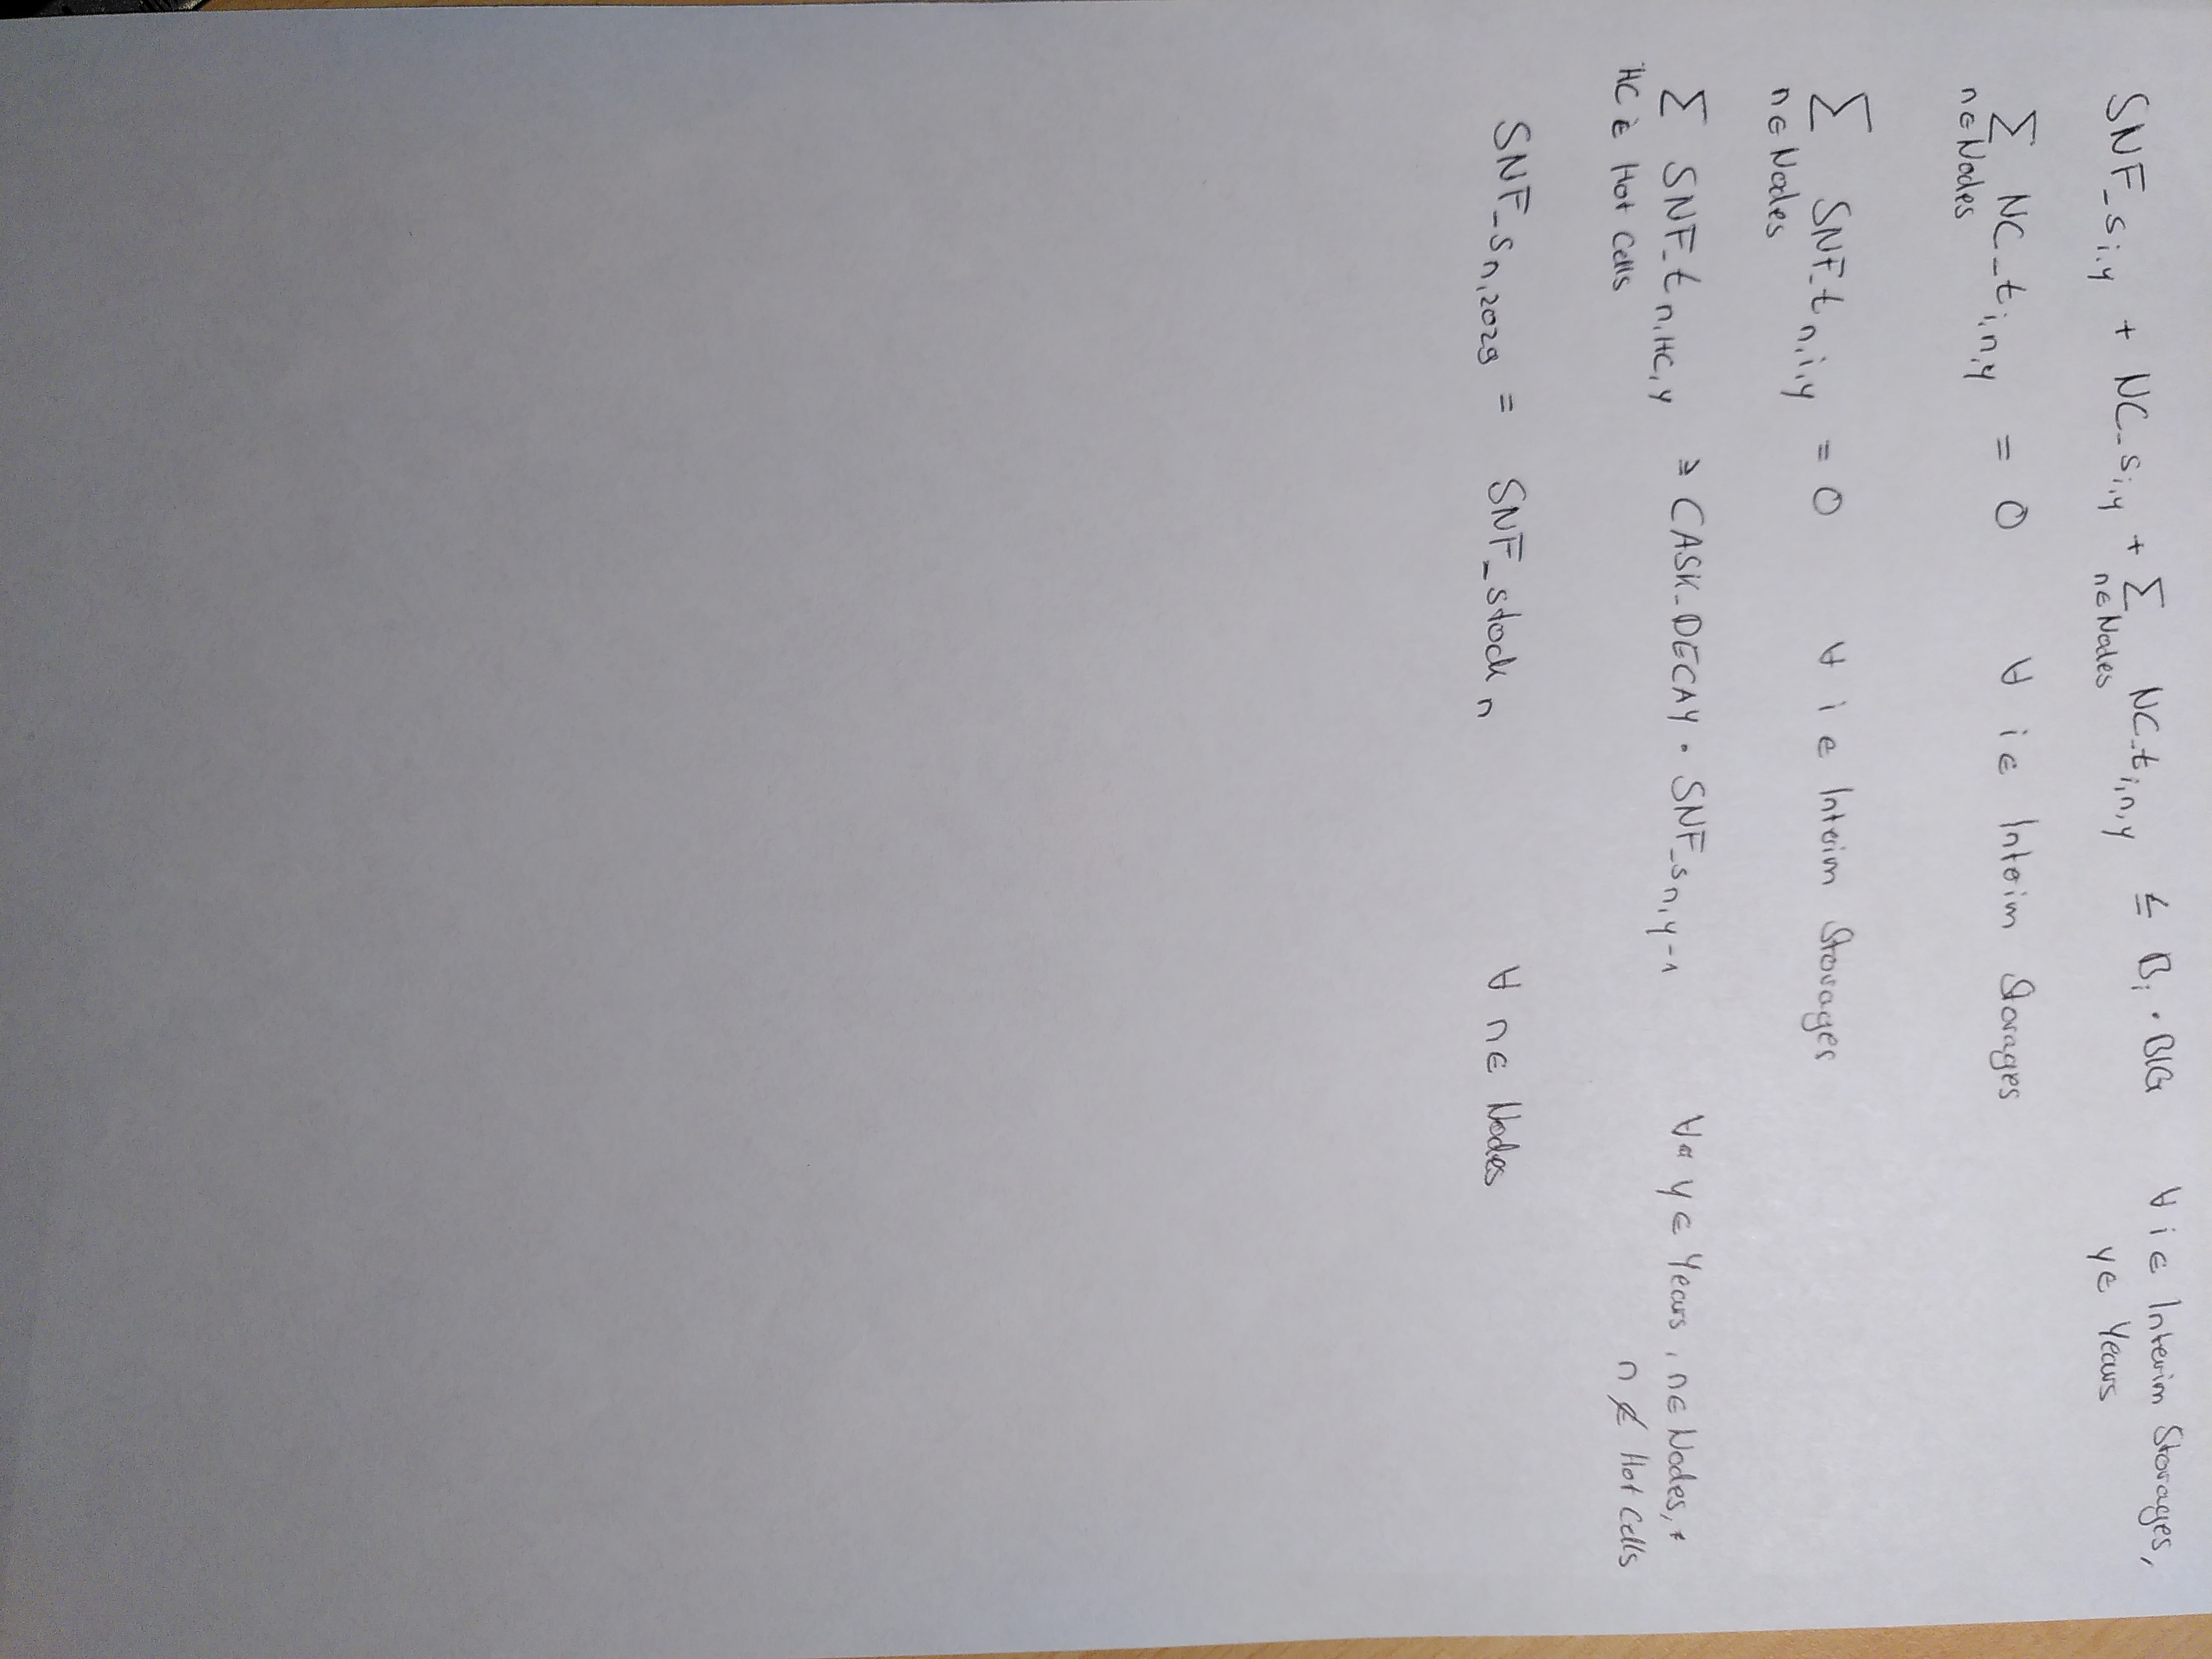 SNF_s i,y + NC_s i,y + Σ n∈Nodes NC_t i,n,y ≤ B i · BIG ∀ i ∈ Interim Storages,
y ∈ Years
Σ n∈Nodes NC_t i,n,y = 0 ∀ i ∈ Interim Storages
Σ n∈Nodes SNF_t n,i,y = 0 ∀ i ∈ Interim Storages
Σ HC ∈ Hot Cells SNF_t n,HC,y ≥ CASK_DECAY · SNF_s n,y-1 ∀ y ∈ Years, n ∈ Nodes,
n ∉ Hot Cells
SNF_s n,2029 = SNF_stock n ∀ n ∈ Nodes